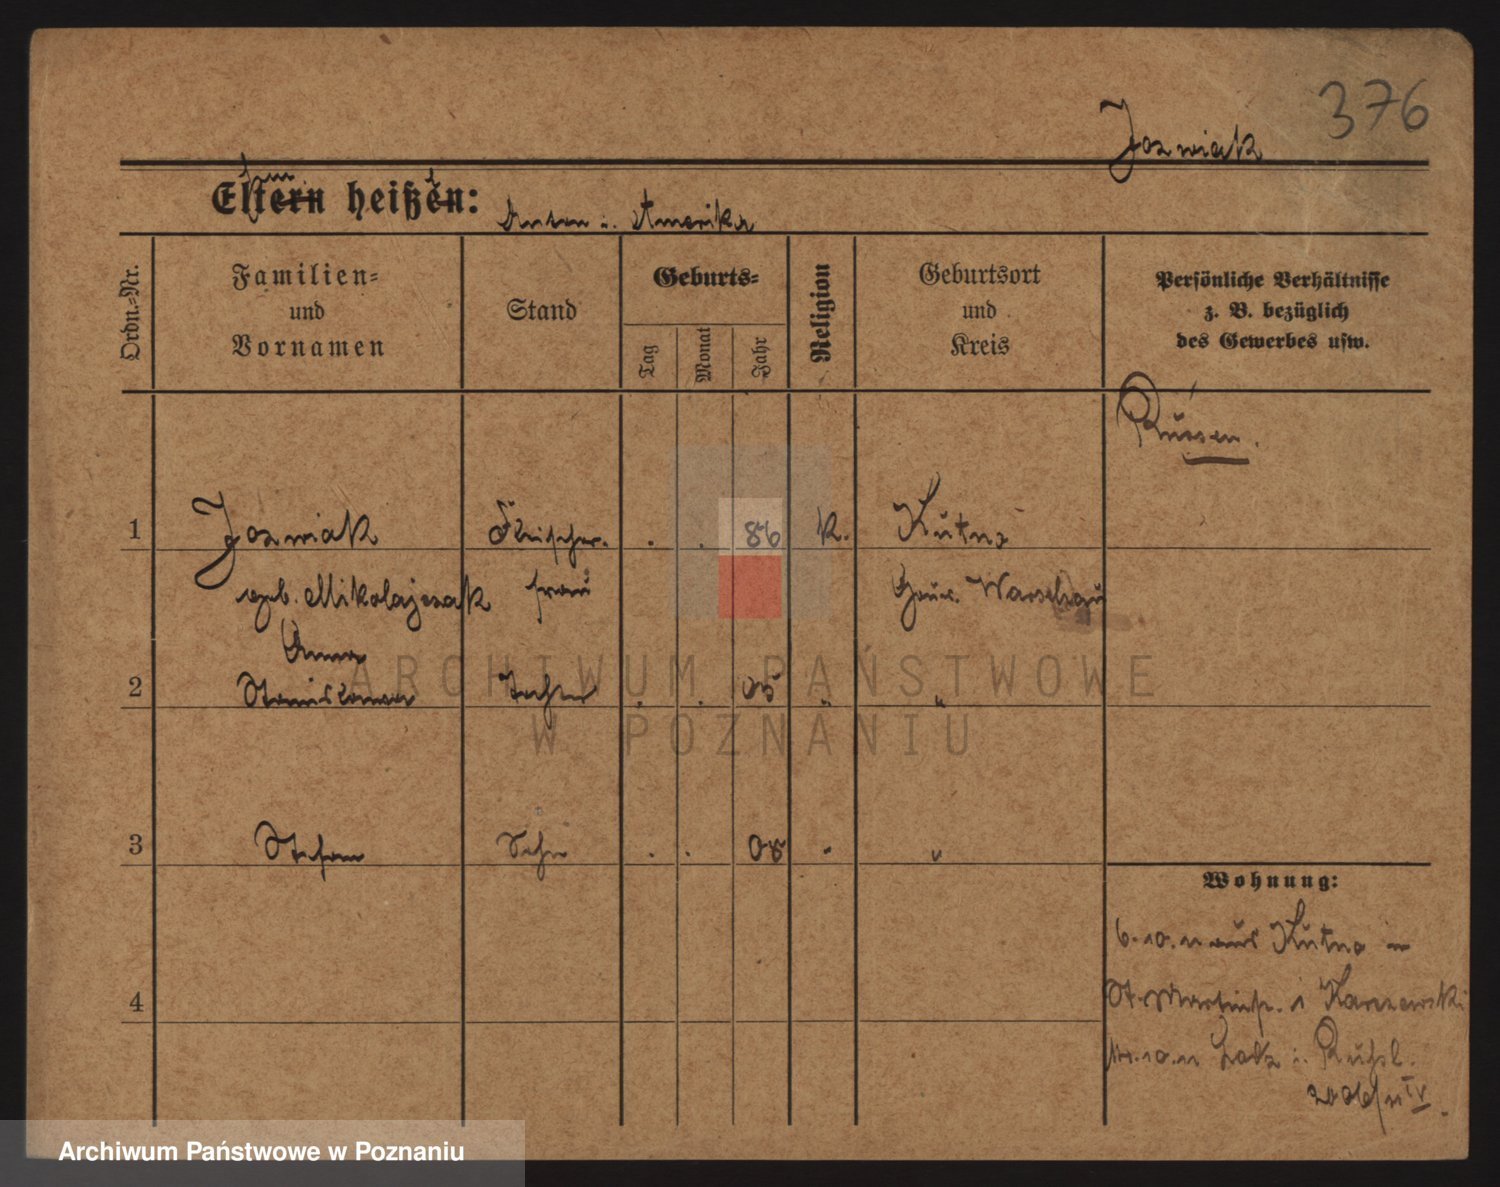 376
Jozwiak
Eltern heißen:
Anton i. Amerika
Ordn.-Nr.
Familien-
und
Vornamen
Stand
Geburts-
Tag
Monat
Jahr
Religion
Geburtsort
und
Kreis
Persönliche Verhältnisse
z. B. bezüglich
des Gewerbes usw.
Russen.
1 Jozwiak Fleischer. . . 86 k. Kutno
geb. Mikolajczak frau Gouv. Warschau
Anna
2 Stanislawa Tochter . . 05 " "
3 Stefan Sohn . . 08 " "
Wohnung:
6.10.11 aus Kutno in
St. Martinstr. 1 Karczewski
10.11 Lodz i. Rußl.
4
ARCHIWUM PAŃSTWOWE
W POZNANIU
Archiwum Państwowe w Poznaniu